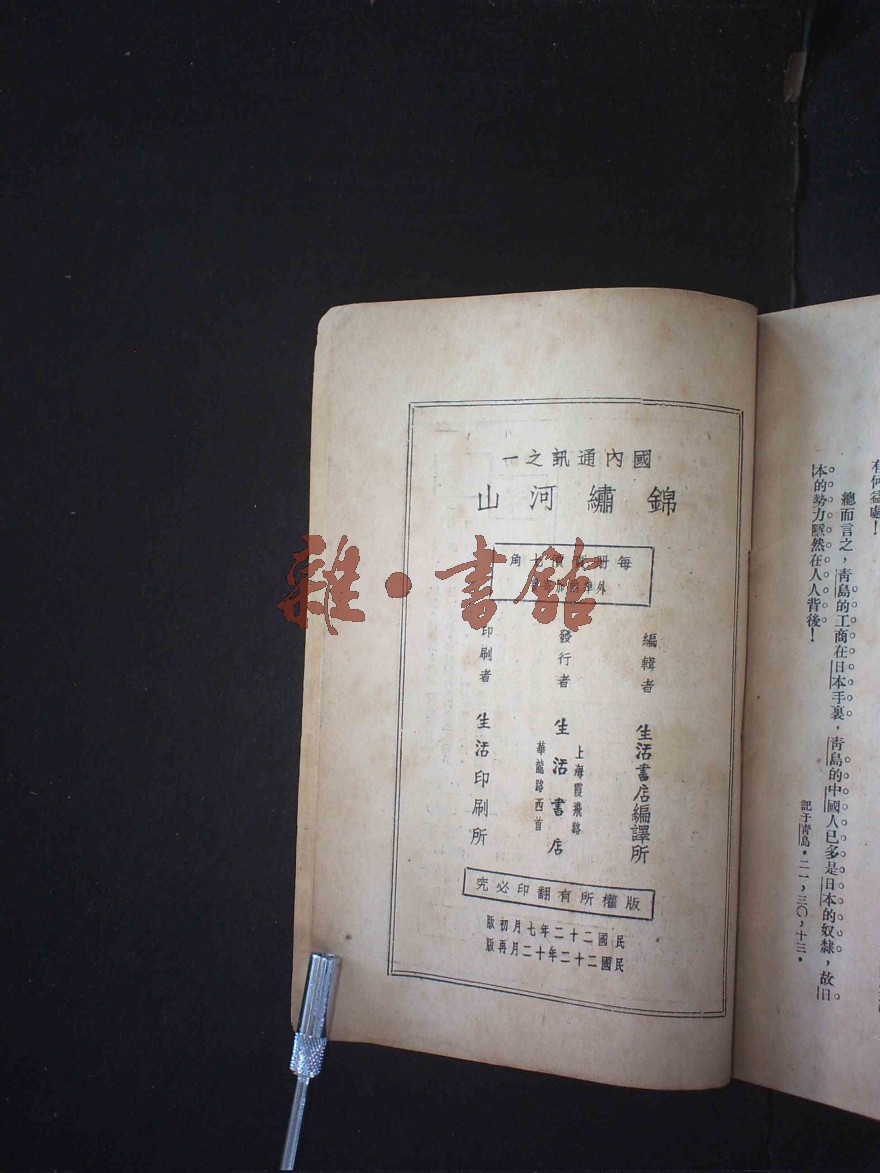 有何益處！
總而言之，青島的工商在日本手裏，青島的中國人已多是日本的奴隸，故日
本的勢力隱然在人人背後！
記于青島·二一，三〇，十三·
國內通訊之一
錦繡河山
每冊實價七角
外埠
編輯者 生活書店編譯所
發行者 生活書店
上海霞飛路
華龍路西首
印刷者 生活印刷所
版權所有翻印必究
民國二十二年七月初版
民國二十二年十二月再版
雜·書館